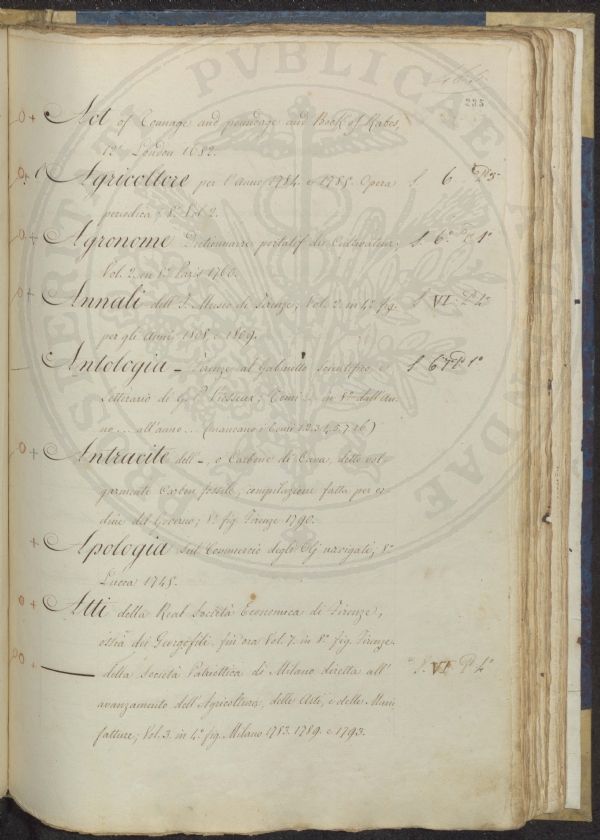 235
Act of Tonnage and poundage and Book of Rates,
12° London 1682.
Agricoltore per l'anno 1784. e 1785. Opera S. 6
periodica; 8° Vol. 2.
Agronome Dictionnaire portatif du Cultivateur; S. 6° 1°
Vol. 2. in 8° Paris 1760.
Annali dell' I. Museo di Firenze; Vol. 2. in 4° fig. S. VI. 4°
per gli anni 1808. e 1809.
Antologia - Firenze al Gabinetto scientifico e S. 6
Letterario di G. P. Viesseux; Tomi in 8° dall'an-
no... all'anno... (mancano i Tomi 1.2.3.4.5.7.16)
Antracite dell' -, o Carbone di Cava, detto vol-
garmente Carbon fossile; compilazione fatta per or-
dine del Governo; 8° fig. Firenze 1790.
Apologia sul Commercio degli Olj navigati; 8°
Lucca 1745.
Atti della Real Società Economica di Firenze,
ossia dei Georgofili. fin'ora Vol. 7. in 8° fig. Firenze.
della Società Patriottica di Milano diretta all' S. VI. 4°
avanzamento dell'Agricoltura, delle Arti, e delle Mani-
fatture; Vol. 3. in 4° fig. Milano 1783. 1789. e 1793.
PUBLICAE
PROSPERITATI